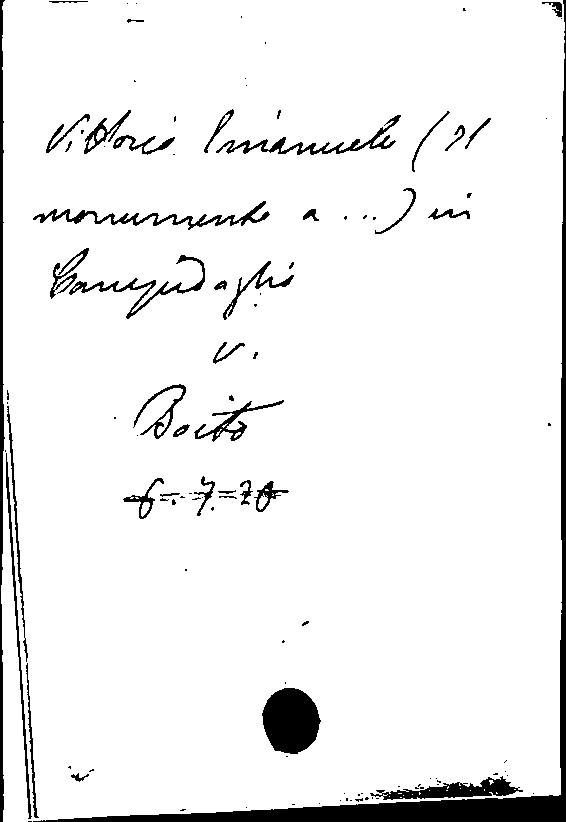 Vittorio Emanuele (Il
monumento a ...) in
Campidoglio
v.
Boito
6. 7. 20